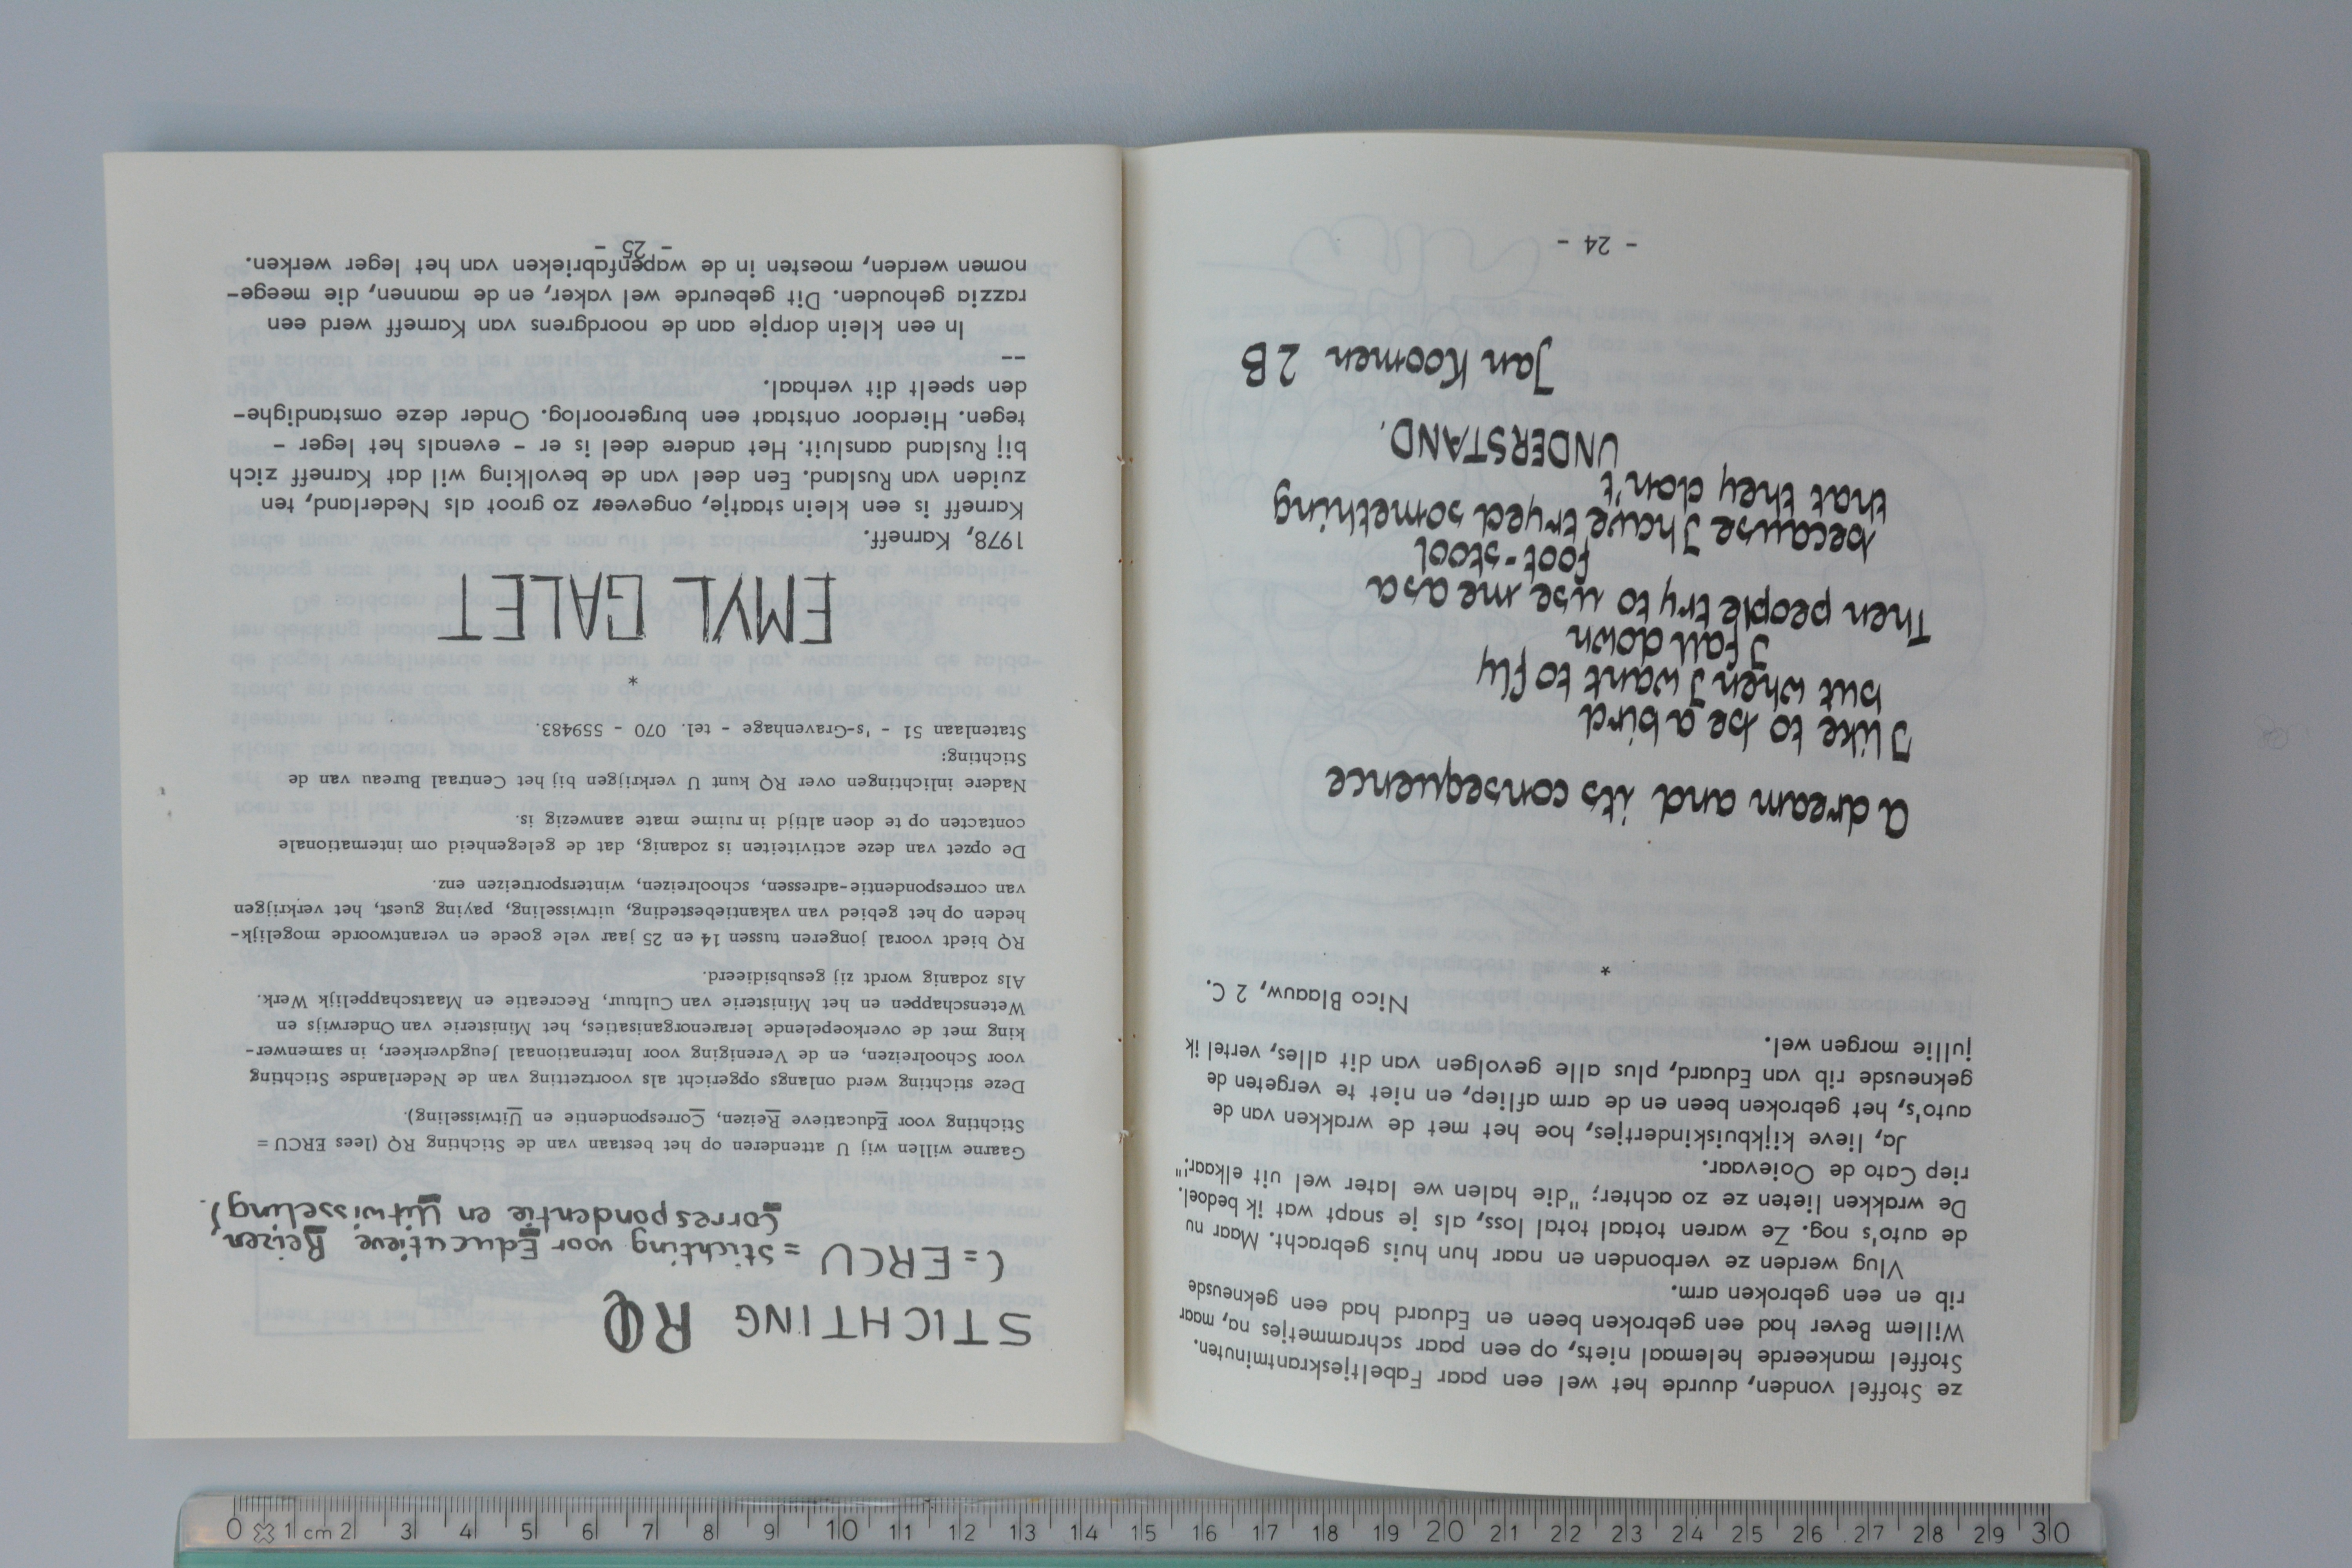 ze Stoffel vonden, duurde het wel een paar Fabeltjeskrantminuten.
Stoffel mankeerde helemaal niets, op een paar schrammetjes na, maar
Willem Bever had een gebroken been en Eduard had een gekneusde
rib en een gebroken arm.
Vlug werden ze verbonden en naar hun huis gebracht. Maar nu
de auto's nog. Ze waren totaal total loss, als je snapt wat ik bedoel.
De wrakken lieten ze zo achter; "die halen we later wel uit elkaar,"
riep Cato de Ooievaar.
Ja, lieve kijkbuiskindertjes, hoe het met de wrakken van de
auto's, het gebroken been en de arm afliep, en niet te vergeten de
gekneusde rib van Eduard, plus alle gevolgen van dit alles, vertel ik
jullie morgen wel.
Nico Blaauw, 2 C.
*
a dream and its consequence
I like to be a bird
but when I want to fly
I fall down
Then people try to use me as a
foot-stool
because I have tryed something
that they don't
UNDERSTAND.
Jan Koomen 2B
- 24 -
STICHTING RQ
( = ERCU = Stichting voor Educatieve Reizen,
Correspondentie en Uitwisseling).
Gaarne willen wij U attenderen op het bestaan van de Stichting RQ (lees ERCU =
Stichting voor Educatieve Reizen, Correspondentie en Uitwisseling).
Deze stichting werd onlangs opgericht als voortzetting van de Nederlandse Stichting
voor Schoolreizen, en de Vereniging voor Internationaal Jeugdverkeer, in samenwer-
king met de overkoepelende lerarenorganisaties, het Ministerie van Onderwijs en
Wetenschappen en het Ministerie van Cultuur, Recreatie en Maatschappelijk Werk.
Als zodanig wordt zij gesubsidieerd.
RQ biedt vooral jongeren tussen 14 en 25 jaar vele goede en verantwoorde mogelijk-
heden op het gebied van vakantiebesteding, uitwisseling, paying guest, het verkrijgen
van correspondentie-adressen, schoolreizen, wintersportreizen enz.
De opzet van deze activiteiten is zodanig, dat de gelegenheid om internationale
contacten op te doen altijd in ruime mate aanwezig is.
Nadere inlichtingen over RQ kunt U verkrijgen bij het Centraal Bureau van de
Stichting:
Statenlaan 51 - 's-Gravenhage - tel. 070 - 559483.
*
EMYL GALET
1978, Karneff.
Karneff is een klein staatje, ongeveer zo groot als Nederland, ten
zuiden van Rusland. Een deel van de bevolking wil dat Karneff zich
bij Rusland aansluit. Het andere deel is er - evenals het leger -
tegen. Hierdoor ontstaat een burgeroorlog. Onder deze omstandighe-
den speelt dit verhaal.
--
In een klein dorpje aan de noordgrens van Karneff werd een
razzia gehouden. Dit gebeurde wel vaker, en de mannen, die meege-
nomen werden, moesten in de wapenfabrieken van het leger werken.
- 25 -
0 1 cm 2 3 4 5 6 7 8 9 10 11 12 13 14 15 16 17 18 19 20 21 22 23 24 25 26 27 28 29 30